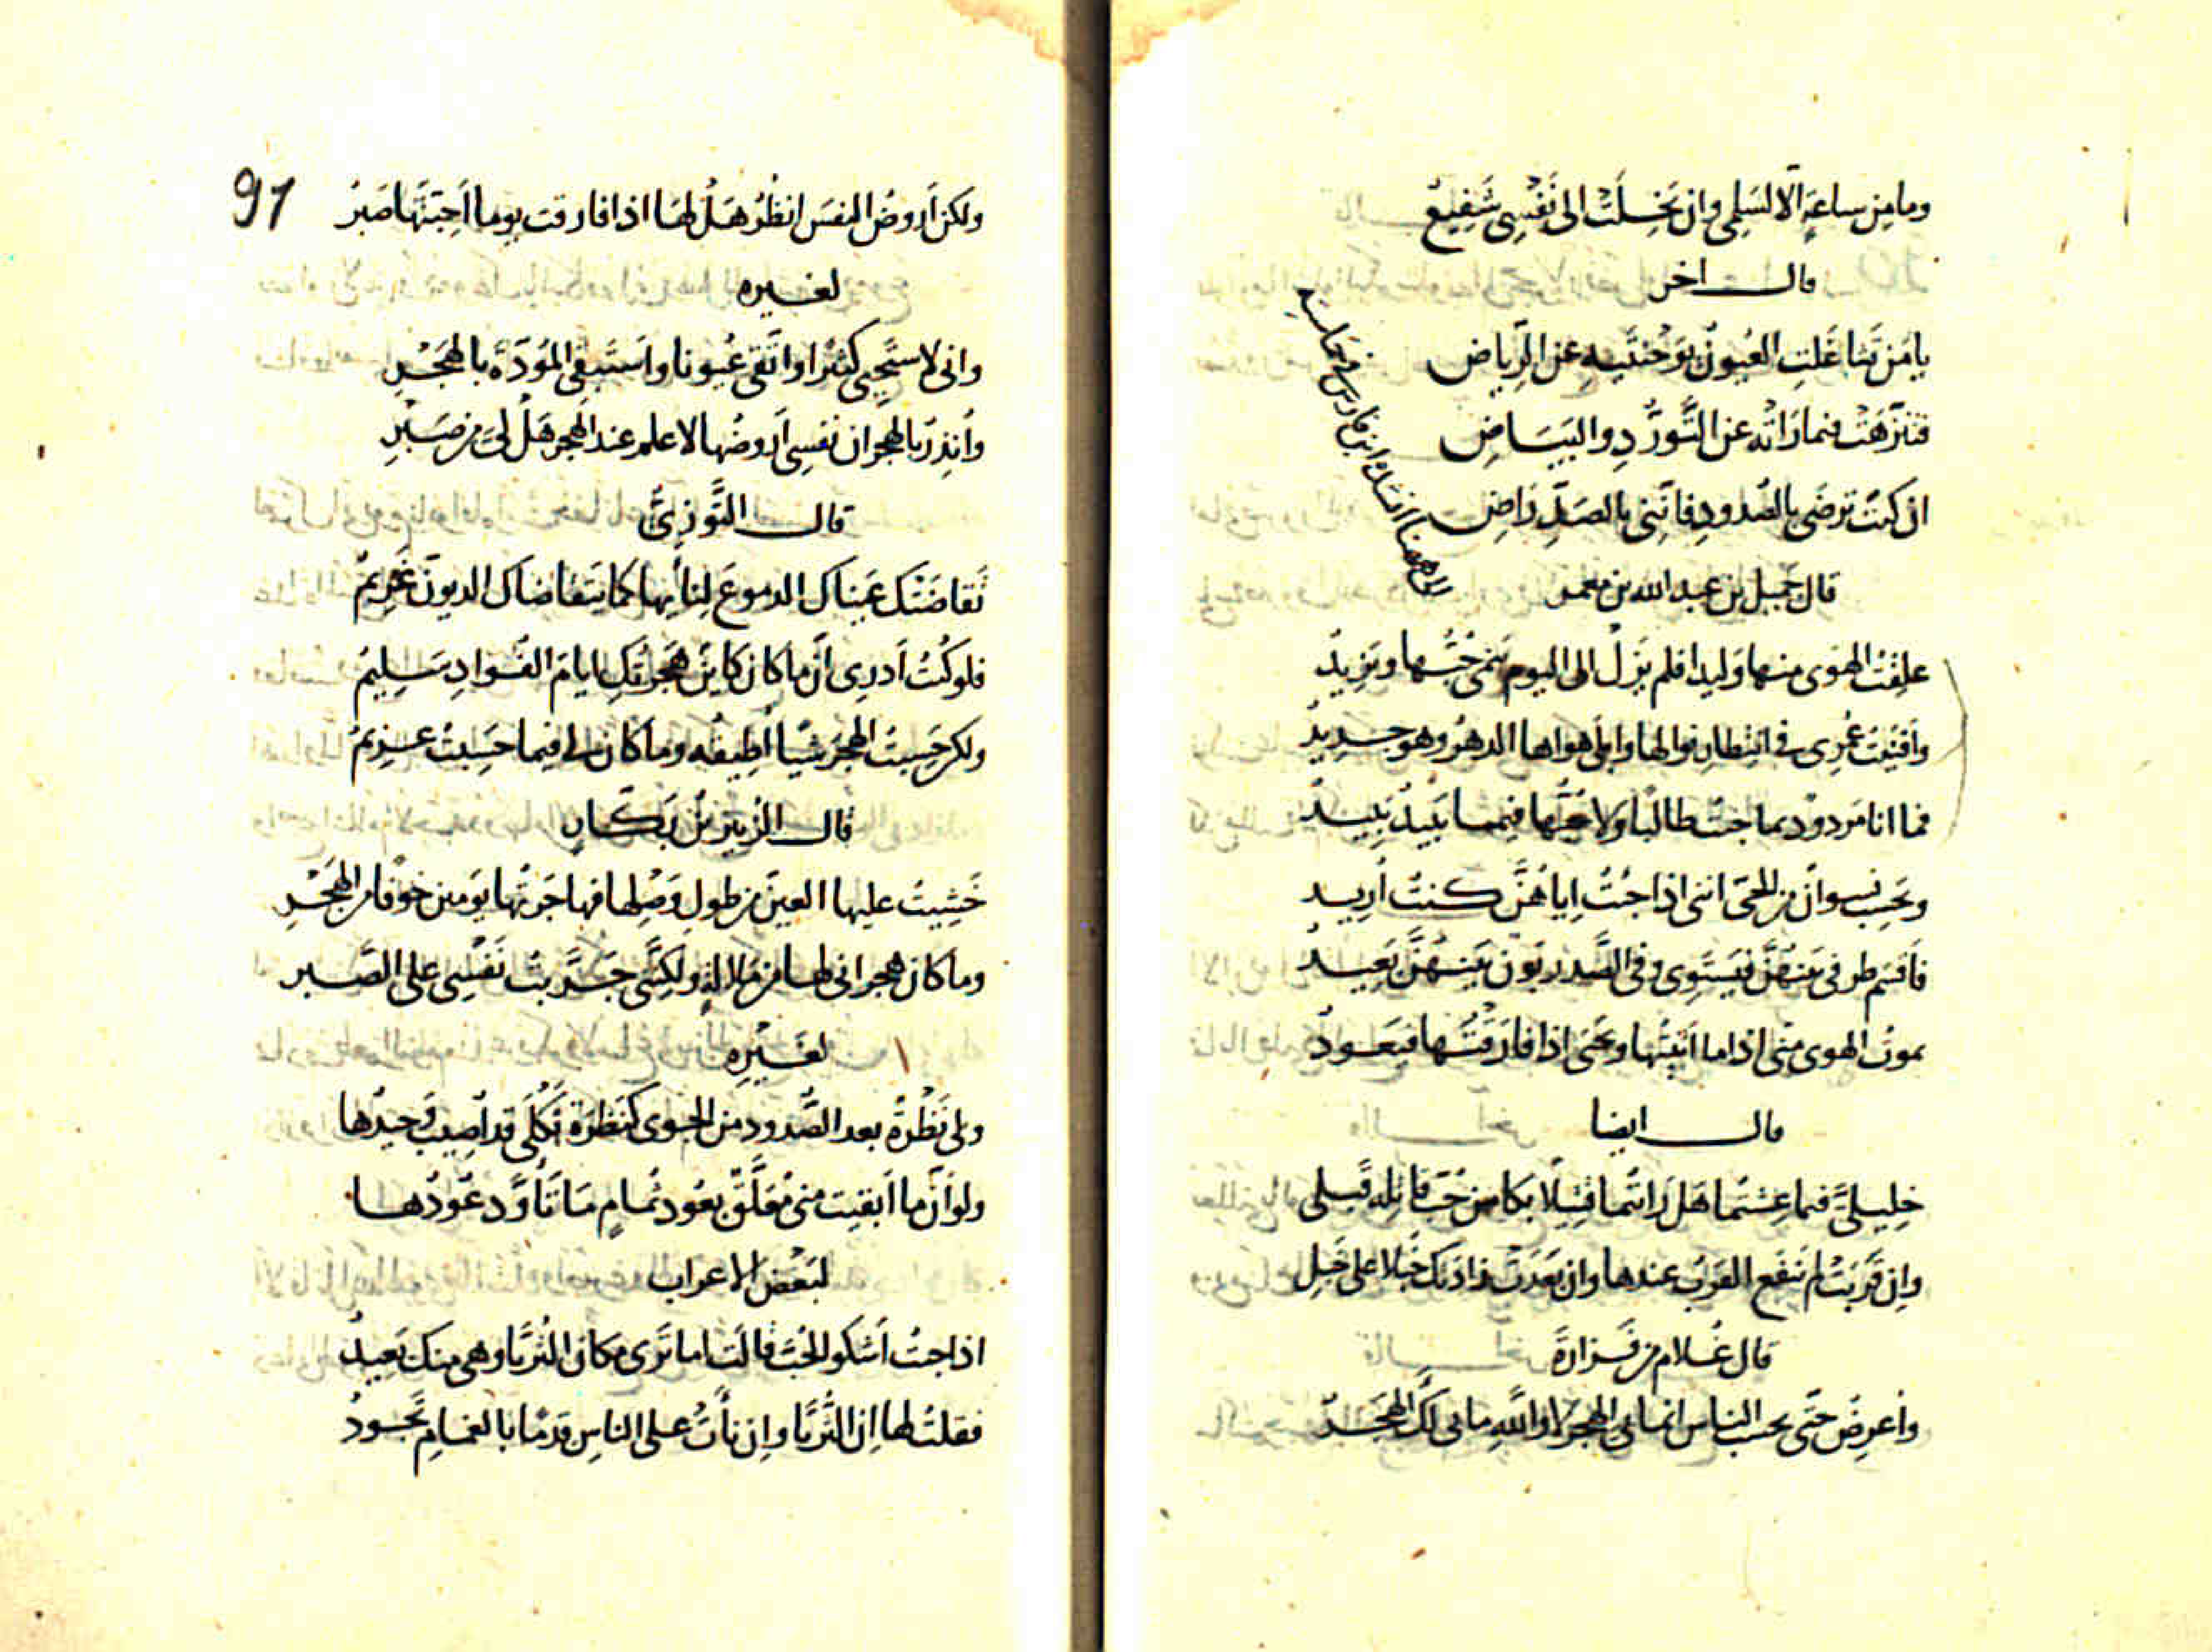 وما مِن ساعةٍ الّا لسَلمى وان بَخِلَتْ الى نَفْسِى شَفِيعُ
قال اخر
يا مَن تَشاغَلتِ العُيونُ بوَجْنتَيه عن الرّياضِ
فتنزّهَتْ فيما رَاتْه عن التَّورُّدِ والبَيَاضِ
ان كنتَ ترضَى بالصُدودِ فانّنى بالصَدِّ رَاضِ
من ههنا انشده ابن فارس فى محاسنه
قال جَميل بن عبد الله بن معمر
علِقتُ الهَوى منها وَليدا فلم يَزلْ الى اليوم يَنمى حُبُّها ويَزِيدُ
وأفنَيتُ عُمرِى فى انتِظارِ نوالها وابلَى هواها الدهرُ وهو جديدُ
فما انا مَردودٌ بما جئتُ طالبًا ولا حُبُّها فيما يَبيدُ يَبِيدُ
وتَحسِب نسوانٌ من الحىّ اننى اذا جئتُ اِيّاهُنَّ كنتُ أريد
فأقسم طرفى بَينهُنَّ فيَستَوِى وفى الصَدر بَون بَينَهُنَّ بَعِيدُ
يموتُ الهوى منى اذا ما اَتيتُها ويَحيَى اذا فارَقتُها فيَعودُ
قال ايضا
خليلىَّ فيما عِشتُما هَل رَاتُما قتيلًا بكا من حُبِّ قاتِله قَبلى
وان قَرُبَتْ لم ينفَع القرب عندها وان بَعُدَت زادَتك خَبلا على خَبلِ
قال غُلام من فَزارة
وأعرِضُ حتّى يحسبَ الناس انما بى الهجر لا واللهِ ما بى لكِ الهَجرُ
91
ولكن أَروضُ النفسَ انظُرُ هَلْ لهَا اذا فارقت يوما اَحِبّتَها صَبرُ
لغيره
وانى لاستَحيى كثيرا واتّقى عُيونا واَستَبقى المَوَدّةَ بالهَجْرِ
وأُنذِرُ بالهجران نَفسِى أَروضُها لاعلم عند الهَجر هَلْ لىَ من صَبْرِ
قال التَّوّزىُّ
تَقاضَتك عَيناك الدموعَ لِنأيها كما يتَقاضاك الديونَ غَريمُ
فلو كنتُ أَدرِى انّ ما كان كاينٌ هَجرتُكِ ايامَ الفُوادِ سَلِيمُ
ولكن حَسِبتُ الهَجرَ شيًا أطيقُه وما كان لى فيما حَسِبتُ عزيمُ
قال الزُبير بن بَكّار
خَشِيتُ عليها العينَ من طولِ وَصْلِها فهاجَرتُها يَومين خوفًا من الهَجْرِ
وما كان هِجرانى لها من مَلالةٍ ولكنّنى جَرَّبتُ نَفْسِى على الصَبر
لغَيْرِه
ولى نَظْرةٌ بعد الصُدود من الجَوى كنَظرَة ثَكْلَى قد اُصِيبَ وَحيدُها
ولو أنّ ما اَبقيت منى مُعَلَّقٌ بعُود ثُمامٍ مَا تأَوَّد عُودُها
لبَعْض الاعراب
اذا جئتُ اَشكو الحُبّ قالَت اما تَرَى مكان الثُريّا وهى منك بَعيدُ
فقلتُ لها اِن الثُريّا واِن نأتْ على الناسِ قِدمًا بالغمامِ تَجودُ